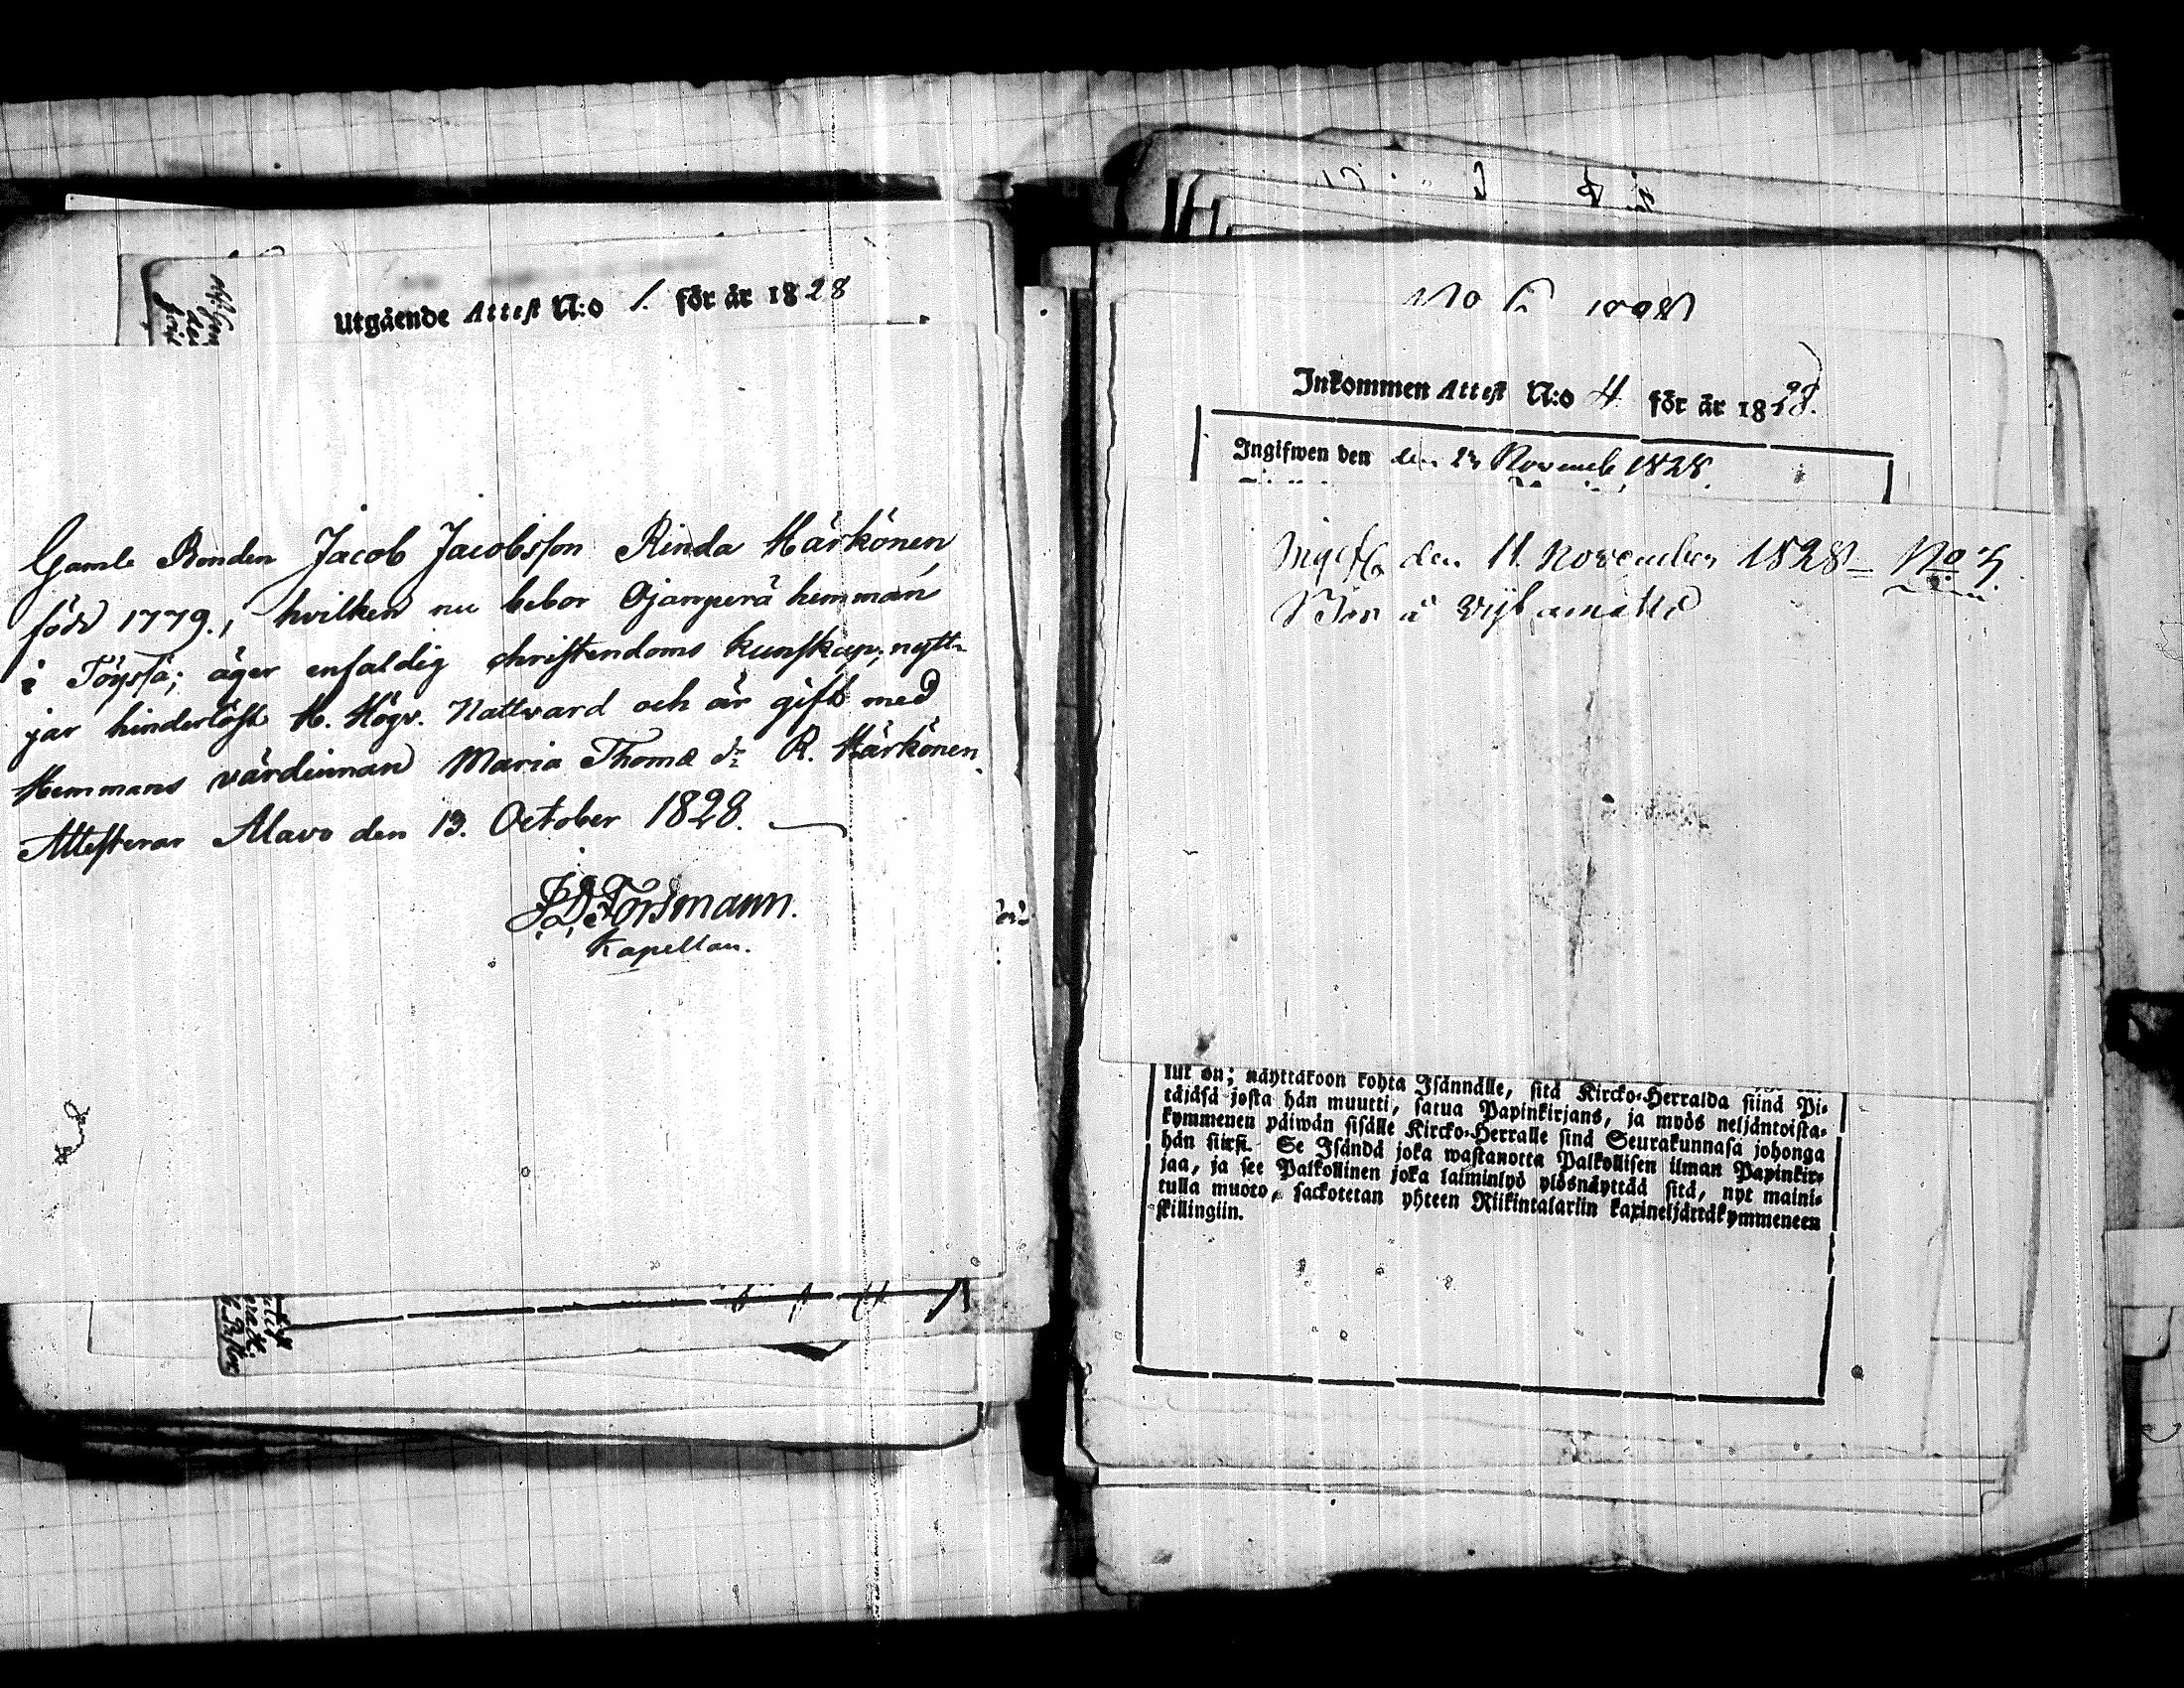 Utgående Attest N:o 1. för år 1828
Gamle Bonden Jacob Jacobsson Rinda Härkönen,
född 1779., hvilken nu bebor Ojanperä hemman
i Töysfä; äger enfaldig christendoms kunskap; nytt-
jar hinderlöst H. Högv. Nattvard och är gift med
Hemmans värdinnan Maria Thomæ dr R. Härkönen.
Attesterar Alavo den 13. October 1828.
J. D. Forsmann.
Kapellan.
Inkommen Attest N:o 4 för år 1828.
Ingifwen den den 23 Novemb 1828.
den 11. November 1828 – No 5.
lut on; näyttäkoon kohta Isännälle, sitä Kircko-Herralda siinä Pi-
täjäsä josta hän muutti, satua Papinkirjans, ja myös neljäntoista-
kymmenen päiwän sisälle Kircko-Herralle siinä Seurakunnasa johonga
hän siirsi. Se Isändä joka wastanotta Palkollisen ilman Papinkir-
jaa, ja see Palkollinen joka laiminlyö ylösnäyttää sitä, nyt maini-
tulla muoto, sackotetan yhteen Riikintalariin kaxineljättäkymmeneen
skillingiin.